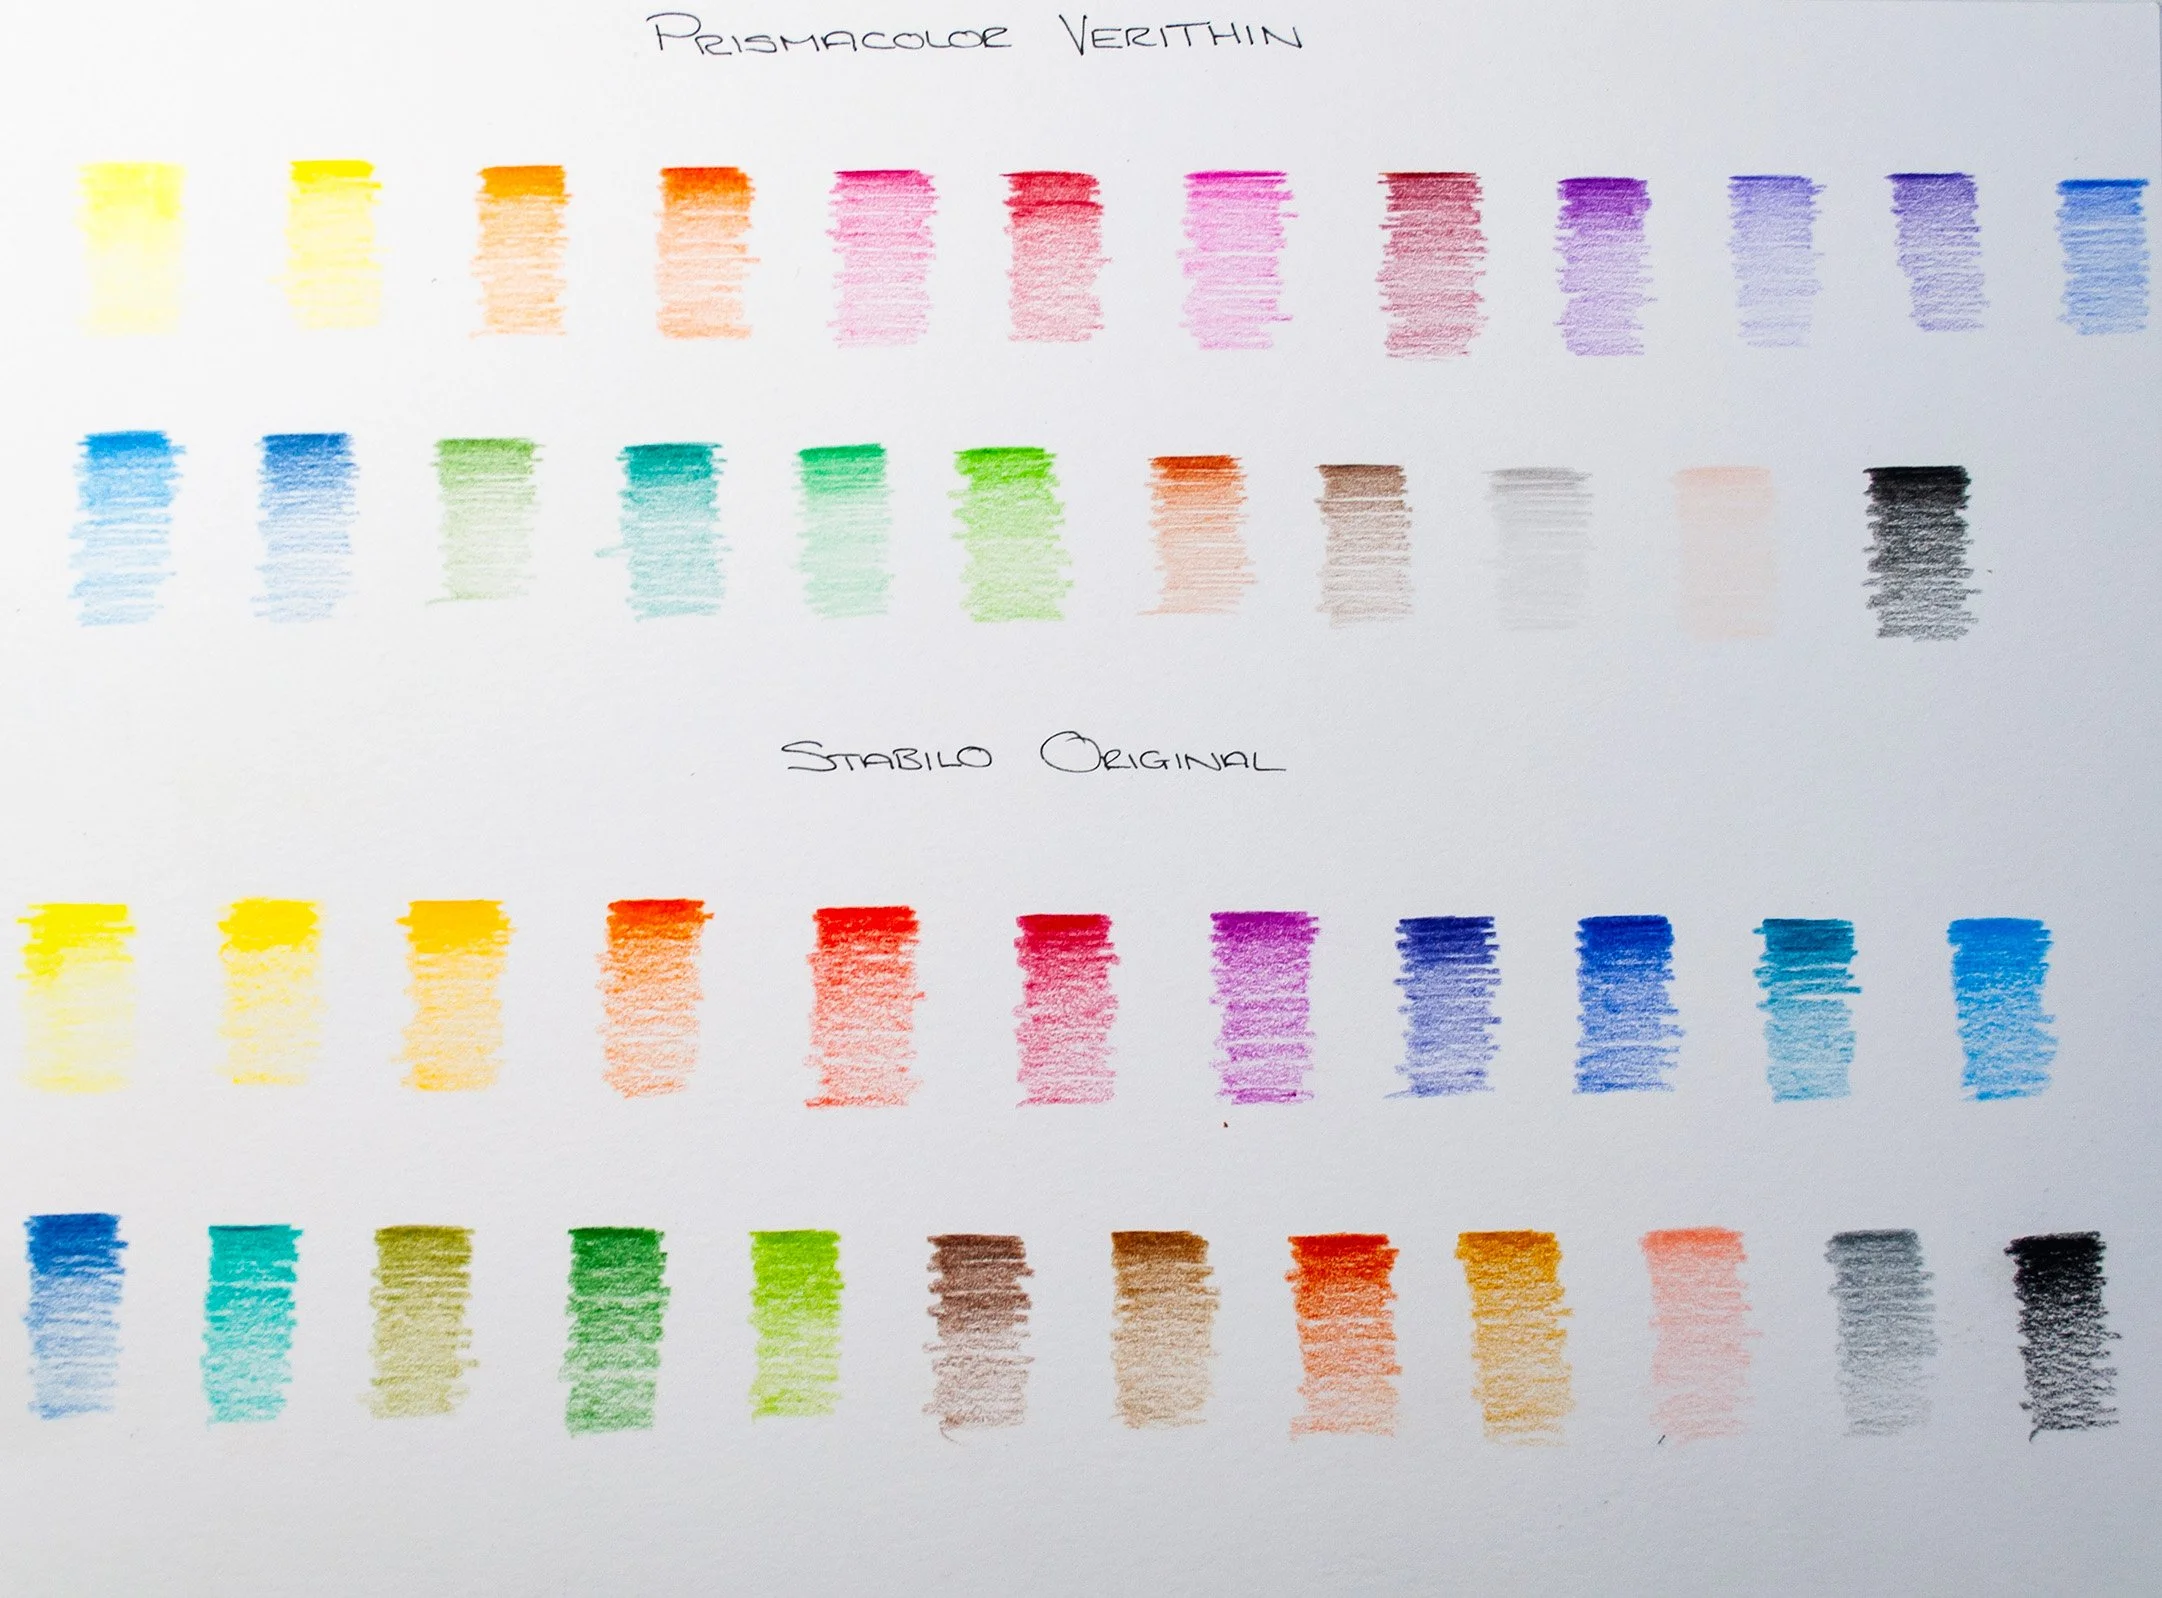 PRISMACOLOR VERITHIN
STABILO ORIGINAL